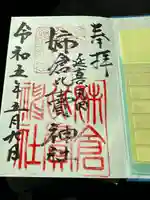 奉拝
延喜式内
姉倉比賣神社
令和五年五月九日
姉倉